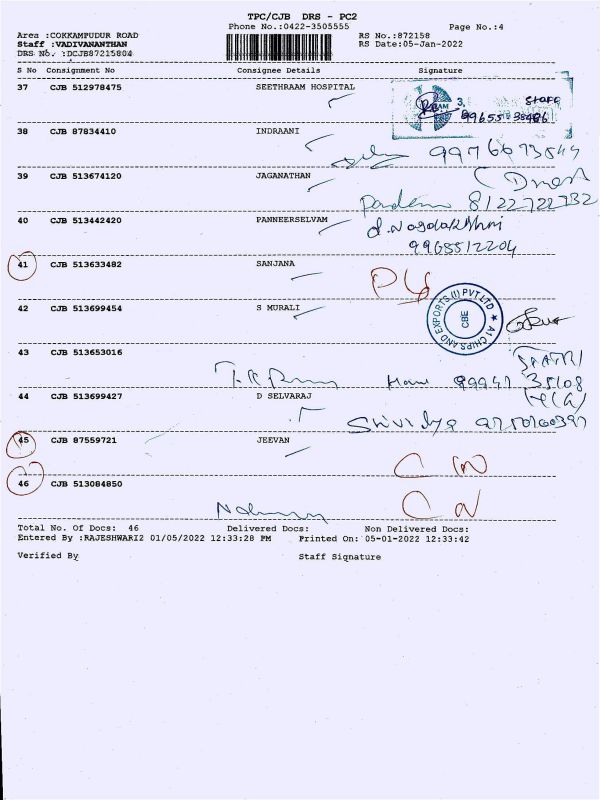 TPC/CJB DRS - PC2
Phone No.:0422-3505555 Page No.:4
Area :COKKAMPUDUR ROAD RS No.:872158
Staff :VADIVANANTHAN RS Date:05-Jan-2022
DRS No. :DCJB87215804
S No Consignment No Consignee Details Signature
37 CJB 512978475 SEETHRAAM HOSPITAL
38 CJB 87834410 INDRAANI
39 CJB 513674120 JAGANATHAN
8122722732
40 CJB 513442420 PANNEERSELVAM
9965512204
41 CJB 513633482 SANJANA
42 CJB 513699454 S MURALI
A1 CHIPS AND EXPORTS (I) PVT LTD
CBE
43 CJB 513653016
44 CJB 513699427 D SELVARAJ
45 CJB 87559721 JEEVAN
46 CJB 513084850
Total No. Of Docs: 46 Delivered Docs: Non Delivered Docs:
Entered By :RAJESHWARI2 01/05/2022 12:33:28 PM Printed On: 05-01-2022 12:33:42
Verified By Staff Signature